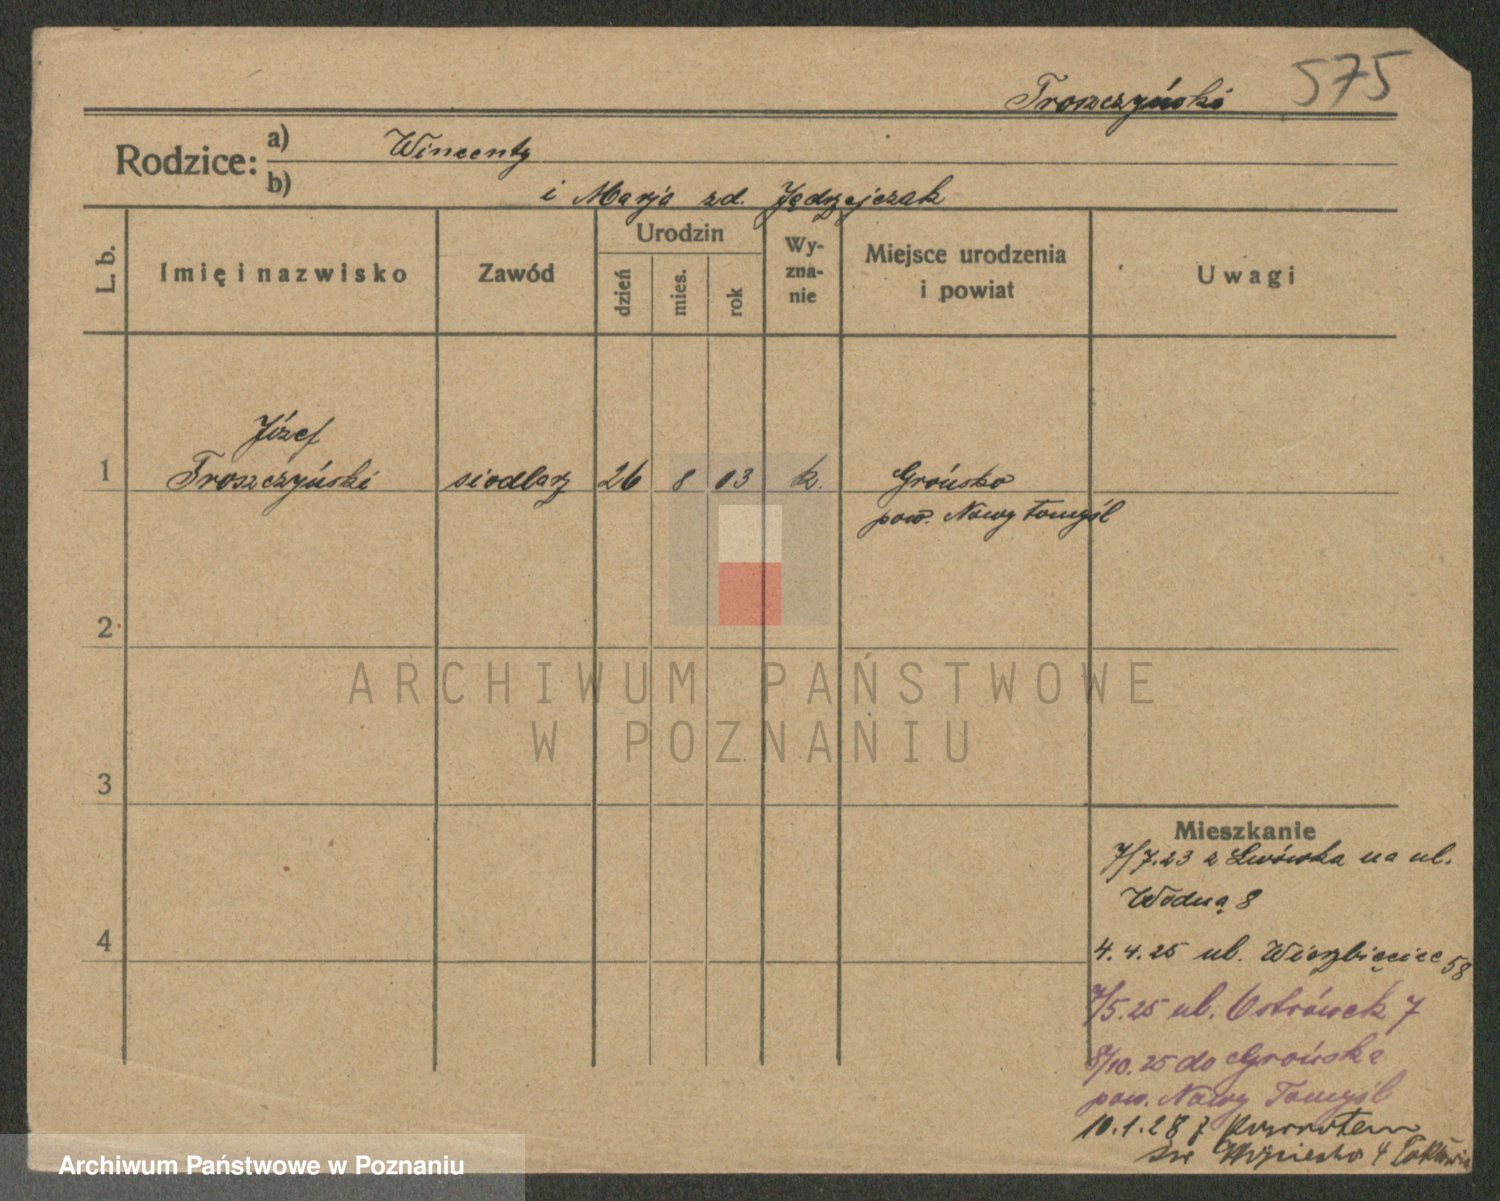 Troszczyński 575
Rodzice:
a) Wincenty
b) i Marja zd. Jędrzejczak
L. b.
Imię i nazwisko
Zawód
Urodzin
dzień
mies.
rok
Wy-
zna-
nie
Miejsce urodzenia
i powiat
Uwagi
Józef
1 Troszczyński siodlarz 26 8 03 k. Grońsko
pow. Nowy Tomyśl
2
3
4
ARCHIWUM PAŃSTWOWE
W POZNANIU
Mieszkanie
7/7.23 z Lwówka na ul.
Wodną 8
4.4.25 ul. Wierzbięcice 58
7/5.25 ul. Ostrówek 7
8/10.25 do Grońska
pow. Nowy Tomyśl
10.1.28 z powrotem
św Wojciecha 4
Archiwum Państwowe w Poznaniu